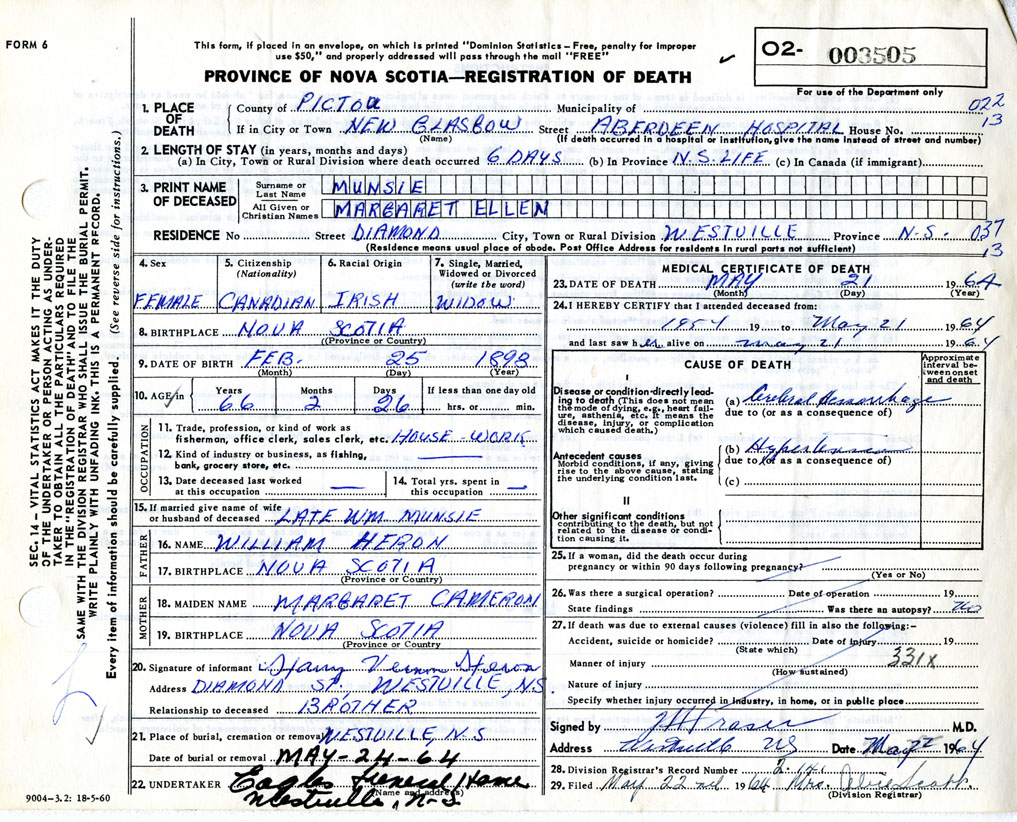 FORM 6
This form, if placed in an envelope, on which is printed "Dominion Statistics – Free, penalty for improper
use $50," and properly addressed will pass through the mail "FREE"
PROVINCE OF NOVA SCOTIA—REGISTRATION OF DEATH
O2- 003505
For use of the Department only
SEC. 14 – VITAL STATISTICS ACT MAKES IT THE DUTY
OF THE UNDERTAKER OR PERSON ACTING AS UNDER-
TAKER TO OBTAIN ALL THE PARTICULARS REQUIRED
IN THE "REGISTRATION OF DEATH" AND TO FILE THE
SAME WITH THE DIVISION REGISTRAR WHO SHALL ISSUE THE BURIAL PERMIT.
WRITE PLAINLY WITH UNFADING INK. THIS IS A PERMANENT RECORD.
Every item of information should be carefully supplied. (See reverse side for instructions.)
1. PLACE OF DEATH
County of PICTOU Municipality of 022
If in City or Town NEW GLASGOW Street ABERDEEN HOSPITAL House No. 13
(Name) (If death occurred in a hospital or institution, give the name instead of street and number)
2. LENGTH OF STAY (in years, months and days)
(a) In City, Town or Rural Division where death occurred 6 DAYS (b) In Province N.S. LIFE (c) In Canada (if immigrant)
3. PRINT NAME OF DECEASED
Surname or Last Name MUNSIE
All Given or Christian Names MARGARET ELLEN
RESIDENCE No Street DIAMOND City, Town or Rural Division WESTVILLE Province N-S- 037
(Residence means usual place of abode. Post Office Address for residents in rural parts not sufficient) 13
4. Sex FEMALE
5. Citizenship (Nationality) CANADIAN
6. Racial Origin IRISH
7. Single, Married, Widowed or Divorced (write the word) WIDOW
8. BIRTHPLACE NOVA SCOTIA
((Province or Country)
9. DATE OF BIRTH FEB. 25 1898
(Month) (Day) (Year)
10. AGE in Years 66 Months 2 Days 26 If less than one day old hrs. or min.
OCCUPATION
11. Trade, profession, or kind of work as
fisherman, office clerk, sales clerk, etc. HOUSE-WORK
12. Kind of industry or business, as fishing,
bank, grocery store, etc.
13. Date deceased last worked
at this occupation
14. Total yrs. spent in
this occupation
15. If married give name of wife
or husband of deceased LATE WM MUNSIE
FATHER
16. NAME WILLIAM HERON
17. BIRTHPLACE NOVA SCOTIA
(Province or Country)
MOTHER
18. MAIDEN NAME MARGARET CAMERON
19. BIRTHPLACE NOVA SCOTIA
(Province or Country)
20. Signature of informant Harry Vernon Heron
Address DIAMOND ST., WESTVILLE, N.S.
Relationship to deceased BROTHER
21. Place of burial, cremation or removal WESTVILLE, N.S.
Date of burial or removal MAY-24-64
22. UNDERTAKER Eagles Funeral Home
(Name and address)
Westville, N-S
9004-3.2: 18-5-60
MEDICAL CERTIFICATE OF DEATH
23. DATE OF DEATH MAY 21 1964
(Month) (Day) (Year)
24. I HEREBY CERTIFY that I attended deceased from:
1954 19 to May 21 1964
and last saw her alive on May 21 1964
CAUSE OF DEATH
Approximate interval between onset and death
I
Disease or condition directly lead-
ing to death (This does not mean
the mode of dying, e.g., heart fail-
ure, asthenia, etc. It means the
disease, injury, or complication
which caused death.)
(a) Cerebral Hemorrhage
due to (or as a consequence of)
Antecedent causes
Morbid conditions, if any, giving
rise to the above cause, stating
the underlying condition last.
(b)
due to (or as a consequence of)
(c)
II
Other significant conditions
contributing to the death, but not
related to the disease or condi-
tion causing it.
25. If a woman, did the death occur during
pregnancy or within 90 days following pregnancy?
(Yes or No)
26. Was there a surgical operation? Date of operation 19
State findings Was there an autopsy? no
27. If death was due to external causes (violence) fill in also the following:–
Accident, suicide or homicide? Date of injury 19
(State which) 331X
Manner of injury
(How sustained)
Nature of injury
Specify whether injury occurred in industry, in home, or in public place
Signed by M.D.
Address Westville NS Date May 22 1964
28. Division Registrar's Record Number
29. Filed May 22nd 1964 Mrs.
(Division Registrar)